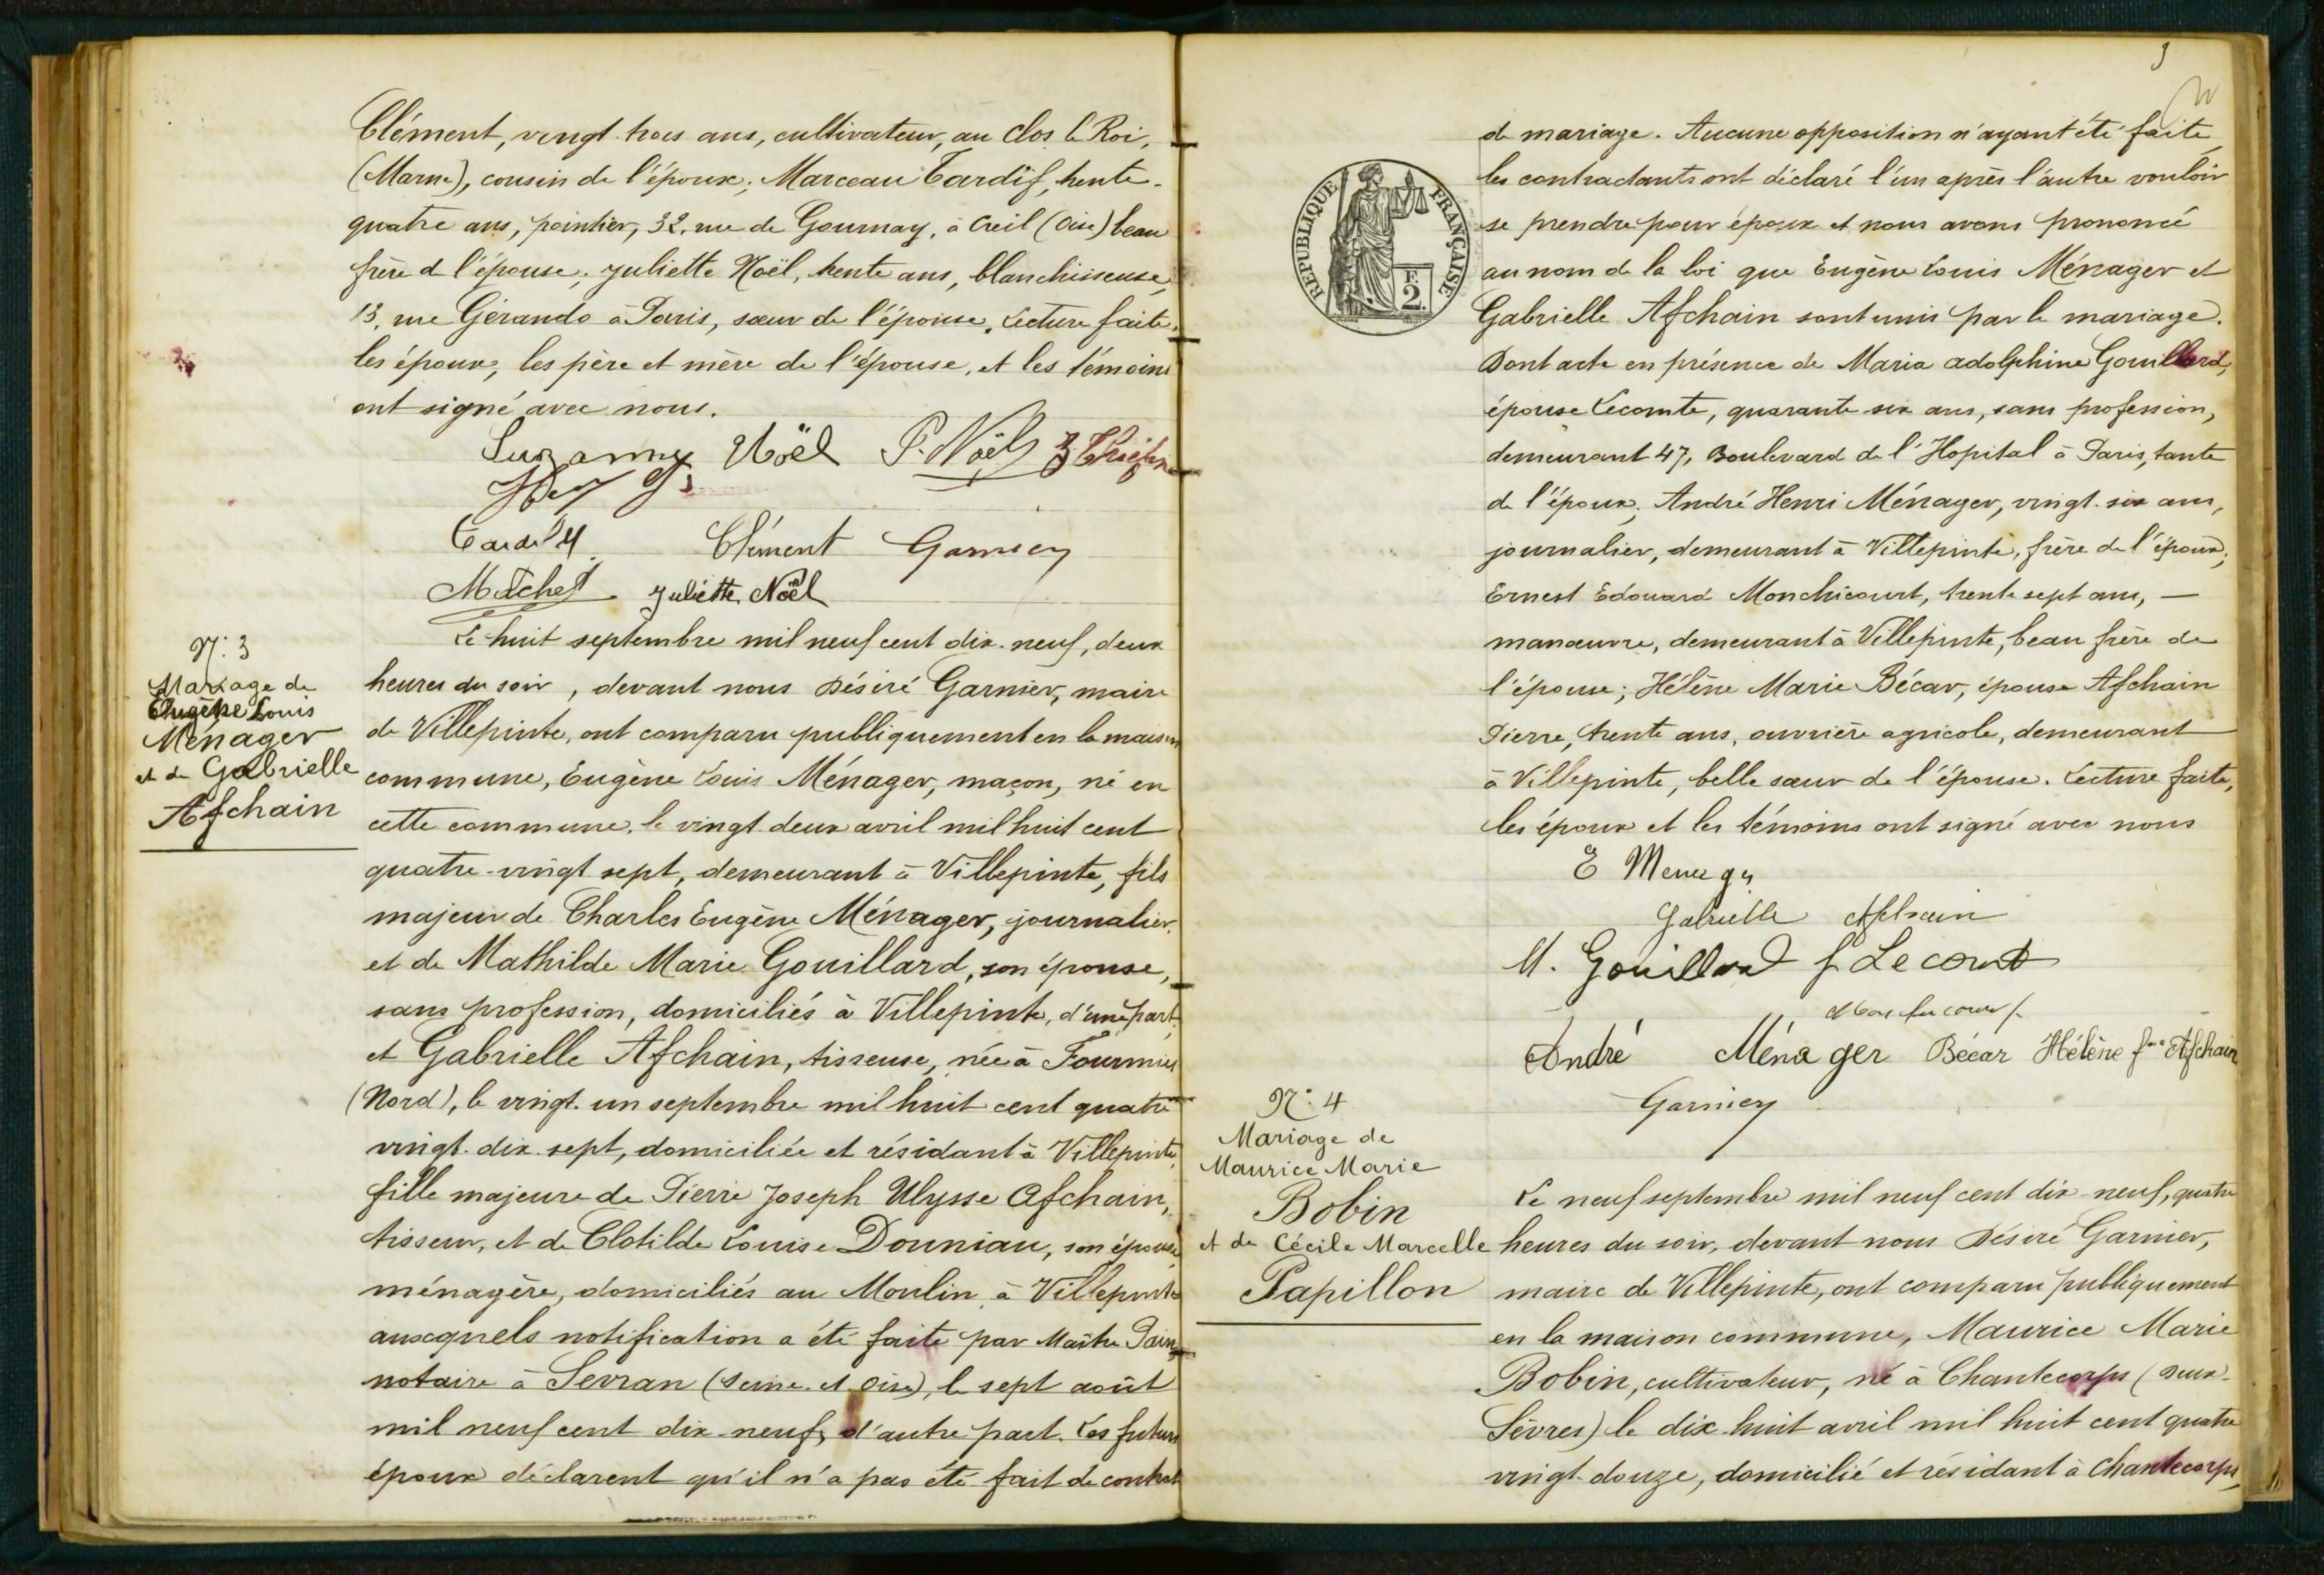 Clément, vingt trois ans, cultivateur, au Clos le Roi,
(Marne), cousin de l'époux; Marceau Tardif, trente-
quatre ans, pointier, 32, rue de Gournay, à Creil (Oise) beau
frère de l'épouse; Juliette Noël, trente ans, blanchisseuse,
13, rue Gérando à Paris, sœur de l'épouse. Lecture faite,
les époux, les père et mère de l'épouse, et les témoins
ont signé avec nous.
Suzanne Noël P. Noël
Clément Garnier
Juliette Noël
N: 3
Mariage de
Eugène Louis
Ménager
et de Gabrielle
Afchain
Le huit septembre mil neuf cent dix-neuf, deux
heures du soir, devant nous Désiré Garnier, maire
de Villepinte, ont comparu publiquement en la maison
commune, Eugène Louis Ménager, maçon, né en
cette commune, le vingt deux avril mil huit cent
quatre-vingt sept, demeurant à Villepinte, fils
majeur de Charles Eugène Ménager, journalier,
et de Mathilde Marie Gouillard, son épouse,
sans profession, domiciliés à Villepinte, d'une part
et Gabrielle Afchain, tisseuse, née à Fourmies
(Nord), le vingt-un septembre mil huit cent quatre
vingt-dix-sept, domiciliée et résidant à Villepinte,
fille majeure de Pierre Joseph Ulysse Afchain,
tisseur, et de Clotilde Louise Douniau, son épouse,
ménagère, domiciliés au Moulin à Villepinte
auxquels notification a été faite par Maître Pain,
notaire à Sevran (Seine-et-Oise), le sept août
mil neuf cent dix-neuf, d'autre part. Les futurs
époux déclarent qu'il n'a pas été fait de contrat
RÉPUBLIQUE FRANÇAISE
2
de mariage. Aucune opposition n'ayant été faite,
les contractants ont déclaré l'un après l'autre vouloir
se prendre pour époux et nous avons prononcé
au nom de la loi que Eugène Louis Ménager et
Gabrielle Afchain sont unis par le mariage.
Dont acte en présence de Maria Adolphine Gouillard,
épouse Lecomte, quarante-six ans, sans profession,
demeurant 47, Boulevard de l'Hopital à Paris, tante
de l'époux; André Henri Ménager, vingt-six ans,
journalier, demeurant à Villepinte, frère de l'époux;
Ernest Edouard Monchicourt, trente sept ans, —
manœuvre, demeurant à Villepinte, beau frère de
l'épouse; Hélène Marie Bécar, épouse Afchain
Pierre, trente ans, ouvrière agricole, demeurant
à Villepinte, belle sœur de l'épouse. Lecture faite,
les époux et les témoins ont signé avec nous
E Menager
Gabrielle Afchain
M. Gouillard f Lecomt
André Ménager Bécar Hélène fme Afchain
Garnier
N: 4
Mariage de
Maurice Marie
Bobin
et de Cécile Marcelle
Papillon
Le neuf septembre mil neuf cent dix-neuf, quatre
heures du soir, devant nous Désiré Garnier,
maire de Villepinte, ont comparu publiquement
en la maison commune, Maurice Marie
Bobin, cultivateur, né à Chantecorps (Deux-
Sèvres) le dix-huit avril mil huit cent quatre
vingt-douze, domicilié et résidant à Chantecorps,